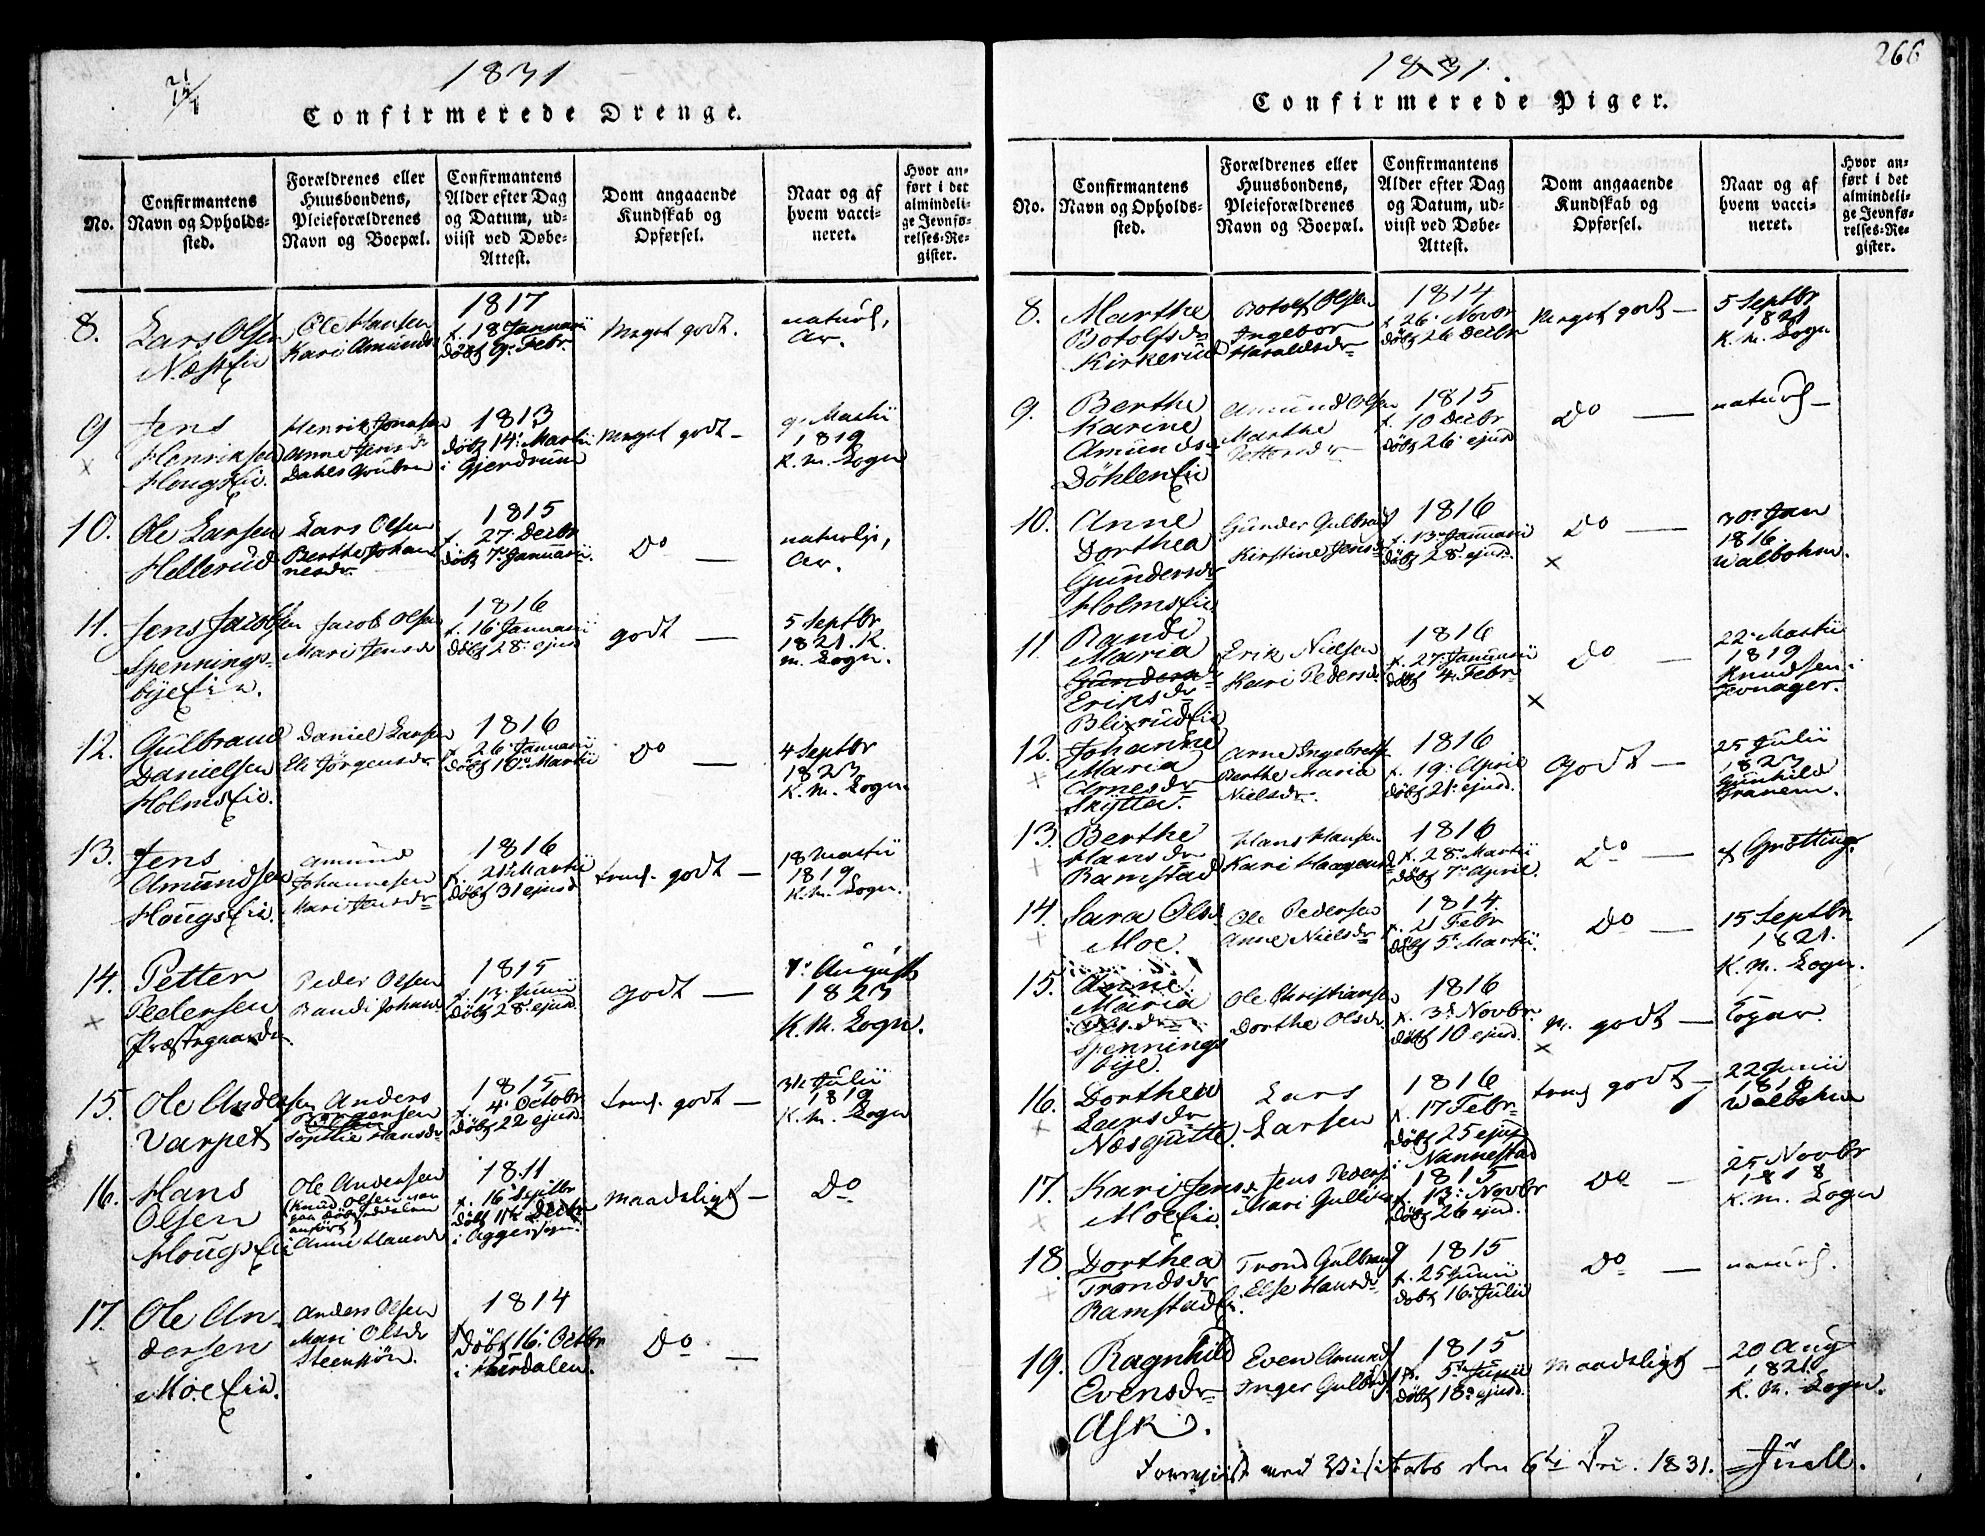 1831
Confirmerede Drenge.
No.
Confirmantens
Navn og Opholds-
sted.
Forældrenes eller
Huusbondens,
Pleieforældrenes
Navn og Boepæl.
Confirmantens
Alder efter Dag
og Datum, ud-
viist ved Døbe-
Attest.
Dom angaaende
Kundskab og
Opførsel.
Naar og af
hvem vacci-
neret.
Hvor an-
ført i det
almindeli-
ge Jevnfø-
relses-Re-
gister.
8.
Lars Olsen
Næst Eie
Ole Hansen
Kari Amunds
1817
f. 18 Januarii
döbt 9. Febr.
Meget godt.
naturl,
Ar.
9
Jens
Henriksen
Hougs Eie.
Henrik Jonasen
Anne Jensdr
Dahls Gruben
1813
döbt 14. Martii
i Gjerdrum
Meget godt —
9 Martii
1819
K. M. Sogn
10.
Ole Larsen
Hellerud
Lars Olsen
Berthe Johan
nesdr.
1815
f. 27 Decbr
döbt 7. Januarii.
Do —
naturlje,
Ar.
11.
Jens Jacobsen
Spennings-
bye Eie.
Jacob Olsen
Mari Jensdr
1816
f. 16 Januarii
döbt 28. ejusd
godt —
5 Septbr
1821. K.
M. Sogn.
12.
Gulbrand
Danielsen
Holms Eie.
Daniel Larsen
Eli Jörgensdr.
1816
f. 26. Januarii
döbt 10. Martii
Do —
4 Septbr
1823
K. M. Sogn
13.
Jens
Amundsen
Hougs Eie.
Amund
Johannesen
Mari Jensdr
1816
f. 21. Martii
döbt 31 ejusd
godt —
18 Martii
1819
K. M. Sogn.
14.
Petter
Pedersen
Præstegaarden
Peder Olsen
Randi Johan
1815
f. 13. Junii
döbt 28. ejusd.
godt —
1. August
1823
K. M. Sogn.
15.
Ole Andersen
Varpet
Anders
Sophie Hansdr
1815
f. 4. Octobr
döbt 22 ejusd.
godt —
31. Julii
1819
K. M. Sogn
16.
Hans
Olsen
Hougs Eie
Ole Andersen
(Knud Olsen
anfört)
Anne Hansdr
1811
i Aggers Sogn.
maadeligt —
Do
17.
Ole An-
dersen
Moe Eie.
Anders Olsen
Mari Olsdr
Steensön.
1814
döbt 16. Octbr
i Hurdalen.
Do —
266
1831.
Confirmerede Piger.
No.
Confirmantens
Navn og Opholds-
sted.
Forældrenes eller
Huusbondens,
Pleieforældrenes
Navn og Boepæl.
Confirmantens
Alder efter Dag
og Datum, ud-
viist ved Døbe-
Attest.
Dom angaaende
Kundskab og
Opførsel.
Naar og af
hvem vacci-
neret.
Hvor an-
ført i det
almindeli-
ge Jevnfø-
relses-Re-
gister.
8.
Marthe
Botolfsdr
Kirkerud
Botolf Olsen
Ingebor
Haraldsdr
1814
f. 26. Novbr
döbt 26 Decbr
Meget godt —
5 Septbr
1821
K. M. Sogn
9.
Berthe
Karine
Amundsdr
Döhlen Eie
Amund Olsen
Marthe
Pettersdr
1815
f. 10 Decbr
döbt 26. ejusd
Do —
naturl —
10.
Anne
Dorthea
Gundersdr
Holms Eie
Gunder Gulbrand
Kirstine Jensdr
1816
f. 13. Januarii
döbt 28. ejusd.
Do —
30. Jan
1816.
Walbohm.
11.
Randi
Maria
Eriksdr
Blixrud Eie
Erik Nielsen
Kari Pedersdr
1816
f. 27. Januarii
döbt 4. Febr
Do —
22. Martii
1819
Knudsen
Jevnager.
12.
Johanne
Maria
Arnesdr
Skytter.
Arne Ingebretsen
Berthe Maria
Nielsdr.
1816
f. 19. April
döbt 21. ejusd.
godt —
25 Julii
1823
Gunhild
Branem.
13.
Berthe
Hansdr
Ramstad
Hans Hansen
Kari Haagensd
1816
f. 28. Martii
döbt 7. April.
Do —
14.
Sara Olsd
Moe.
Ole Pedersen
Anne Nielsdr
1814.
f. 21 Febr
döbt 5. Martii
Do —
15 Septbr
1821.
K. M. Sogn.
15.
Anne
Maria
Olsdr
Spennings
bye.
Ole Christiansen
Dorthe Olsdr
1816
f. 3. Novbr.
döbt 10 ejusd.
M. godt —
16.
Dorthea
Larsdr
Lars
Larsen
1816
f. 17 Febr
döbt 25 ejusd
i Nannestad
godt —
22 Junii
1816
Walbohm
17.
Kari Jensd
Moe Eie.
Jens Peders
Mari Gulliks
1815
f. 13. Novbr
döbt 26 ejusd.
Do —
25 Novbr
1818
K. M. Sogn
18.
Dorthea
Trondsdr
Ramstad Eie.
Trond Gulbrand
Else Hansdr
1815
f. 25 Junii
döbt 16. Julii
Do —
naturl.
19.
Ragnhild
Evensdr
Ask.
Even Amund
Inger Gulbrd
1815
f. 5. Junii
döbt 18. ejusd.
Maadeligt —
20 Aug
1821
K. M. Sogn.
Foreviist ved Visitats den 6te Dec. 1831. Juell.